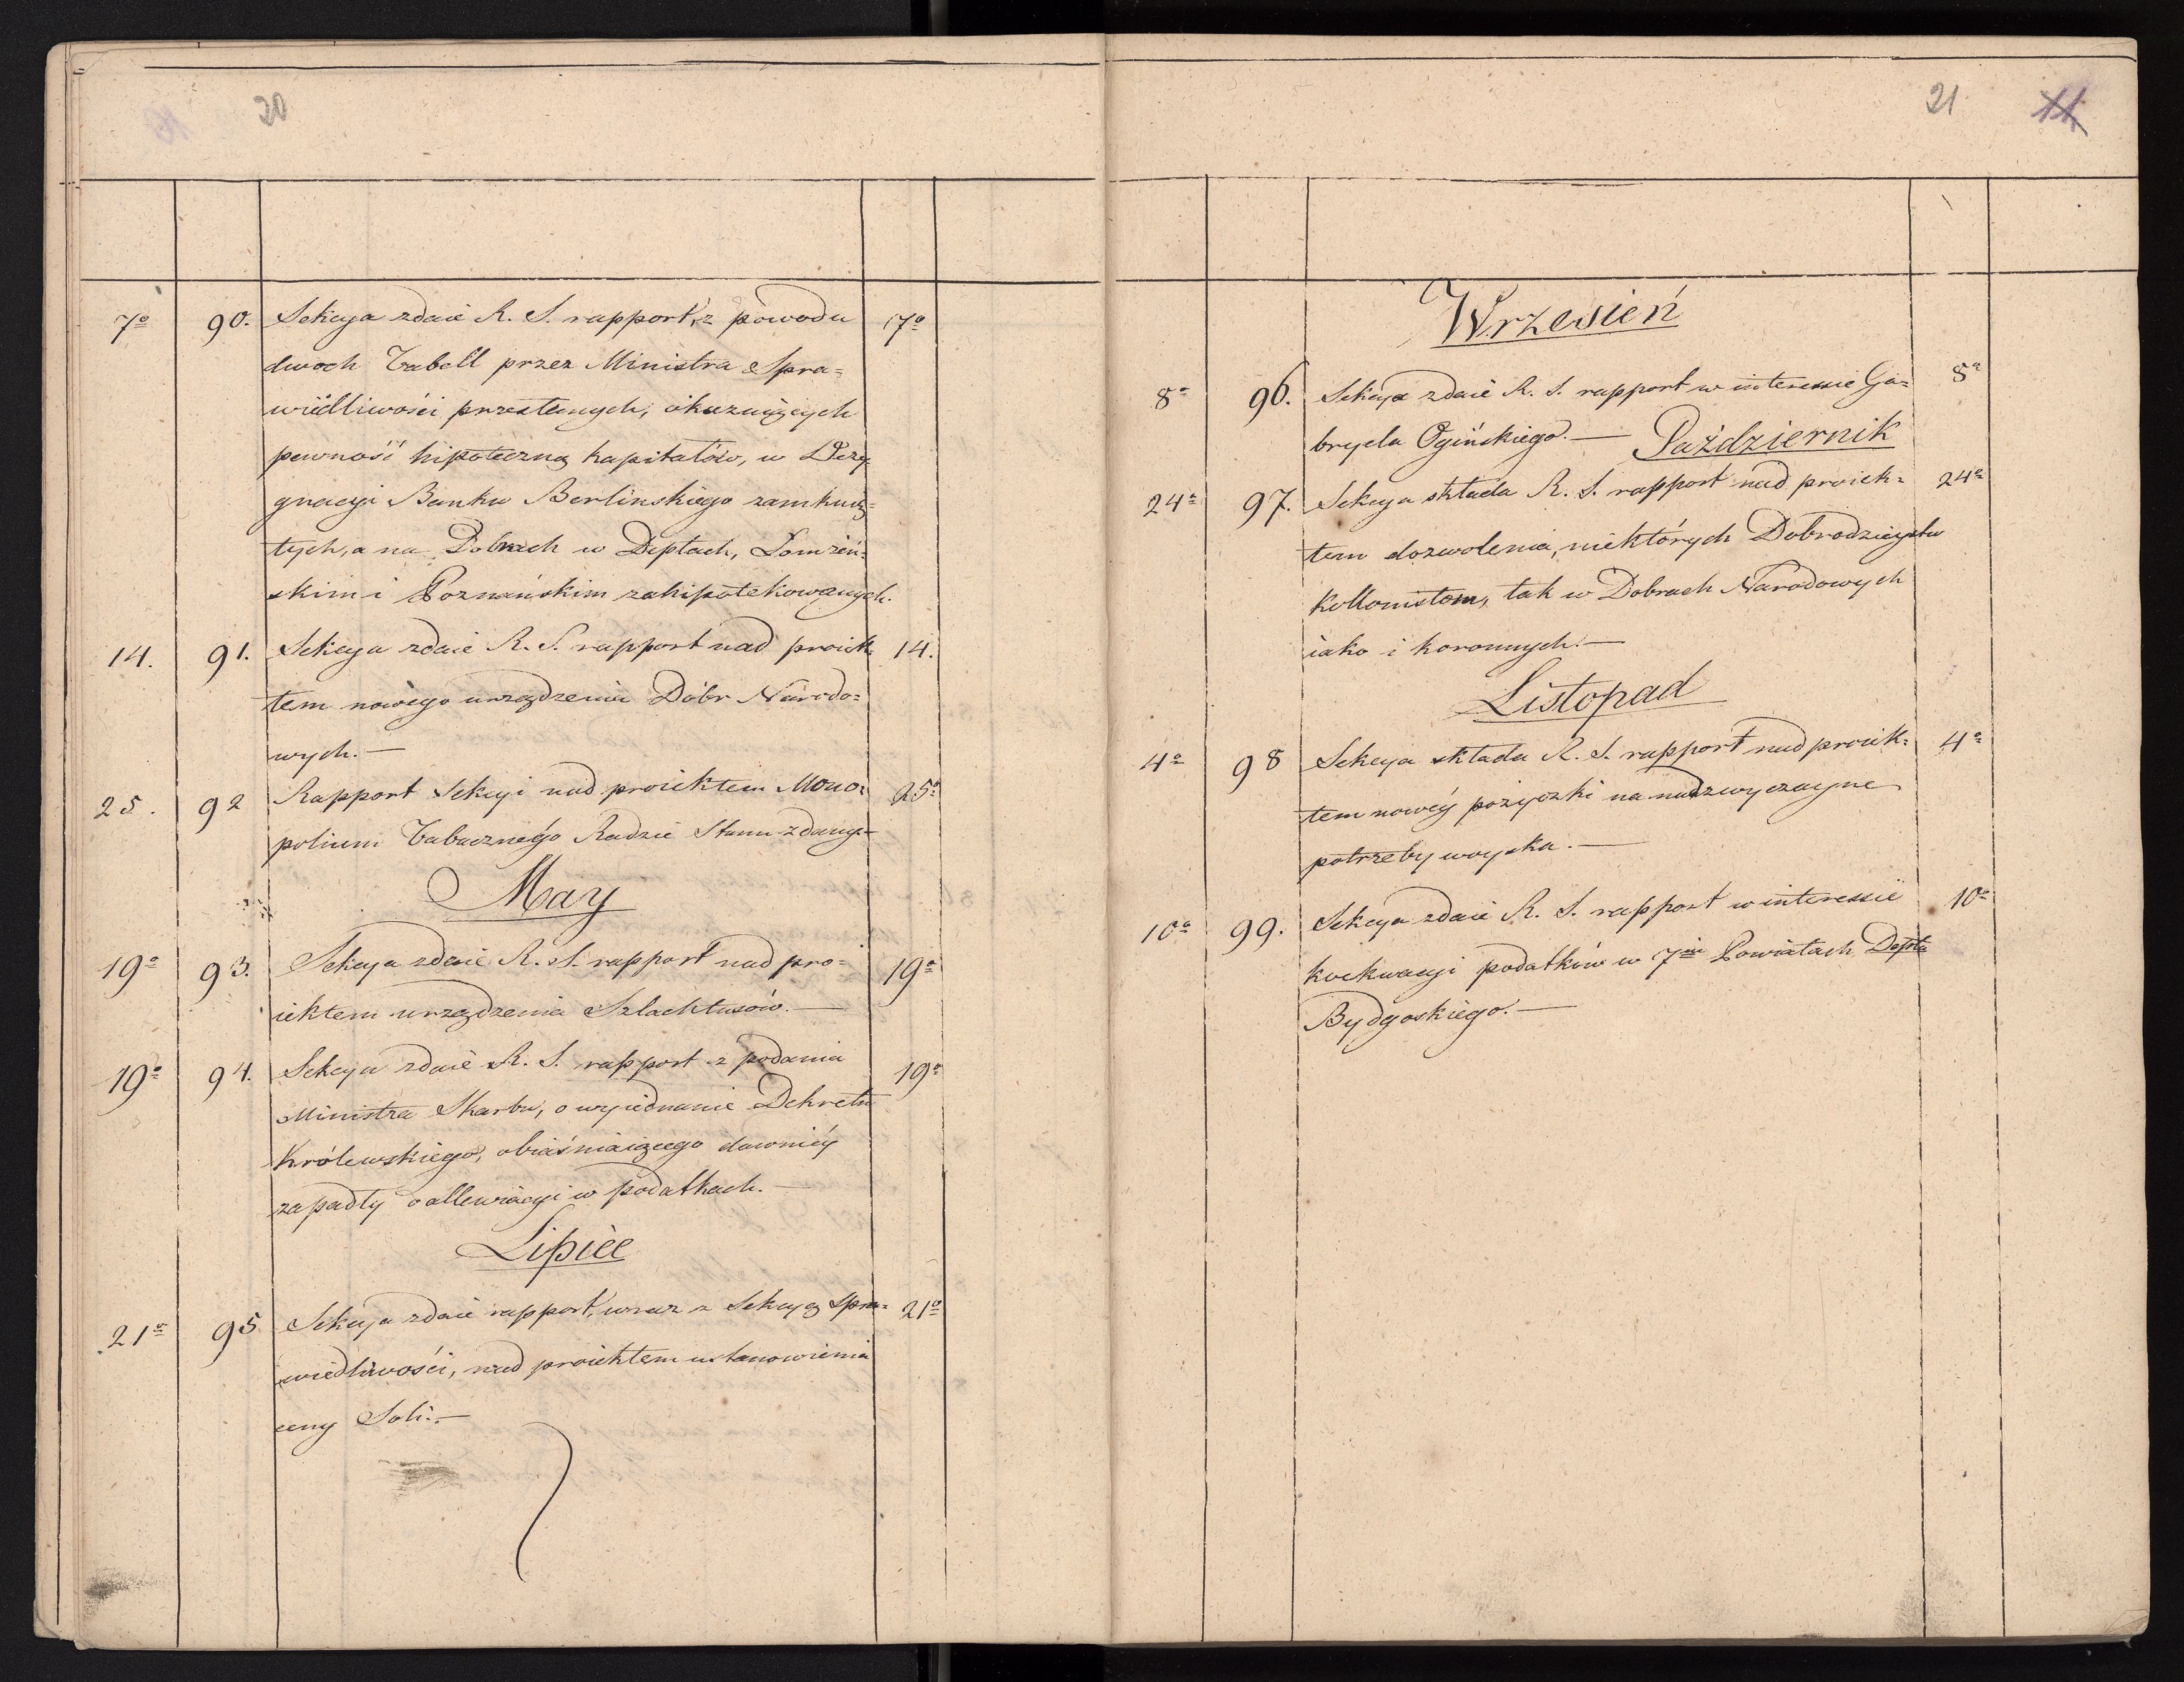 20
7º 90. Sekcya zdaie R. S. rapport, z powodu 7º
dwoch Tabell przez Ministra Spra=
wiedliwości przesłanych, okazuiących
pewność hipoteczną kapitałów, w Dezy
gnacyi Banku Berlinskiego zamknię=
tych, a na Dobrach w Deptach, Łomżeń=
skim i Poznańskim zahipotekowanych.
14. 91. Sekcya zdaie R. S. rapport nad proiek= 14.
tem nowego urządzenia Dóbr Narodo=
wych.—
25. 92 Rapport Sekcyi nad proiektem Mono= 25º
polium Tabacznego Radzie Stanu zdany.—
May
19º 93. Sekcya zdaie R. S. rapport nad pro= 19º
iektem urządzenia Szlachtusów.—
19º 94. Sekcya zdaie R. S. rapport z podania 19º
Ministra Skarbu, o wyiednanie Dekretu
Królewskiego, obiaśniaiącego dawniéy
zapadły o allewiacyi w podatkach.—
Lipiec
21º 95 Sekcya zdaie rapport, wraz z Sekcyą Spra= 21º
wiedliwości, nad proiektem ustanowienia
ceny Soli.—
21 11
Wrzesień
8º 96. Sekcya zdaie R. S. rapport w interessie Ga= 8º
bryela Ogińskiego.— Październik
24º 97. Sekcya składa R. S. rapport nad proiek= 24º
tem dozwolenia, niektórych Dobrodzieystw
Kollonistom, tak w Dobrach Narodowych
iako i koronnych.—
Listopad
4º 98 Sekcya składa R. S. rapport nad proiek= 4º
tem nowéy pożyczki na nadzwyczayne
potrzeby woyska.—
10º 99. Sekcya zdaie R. S. rapport w interessie 10º
koekwacyi podatków w 7miu Powiatach Depta
Bydgoskiego.—